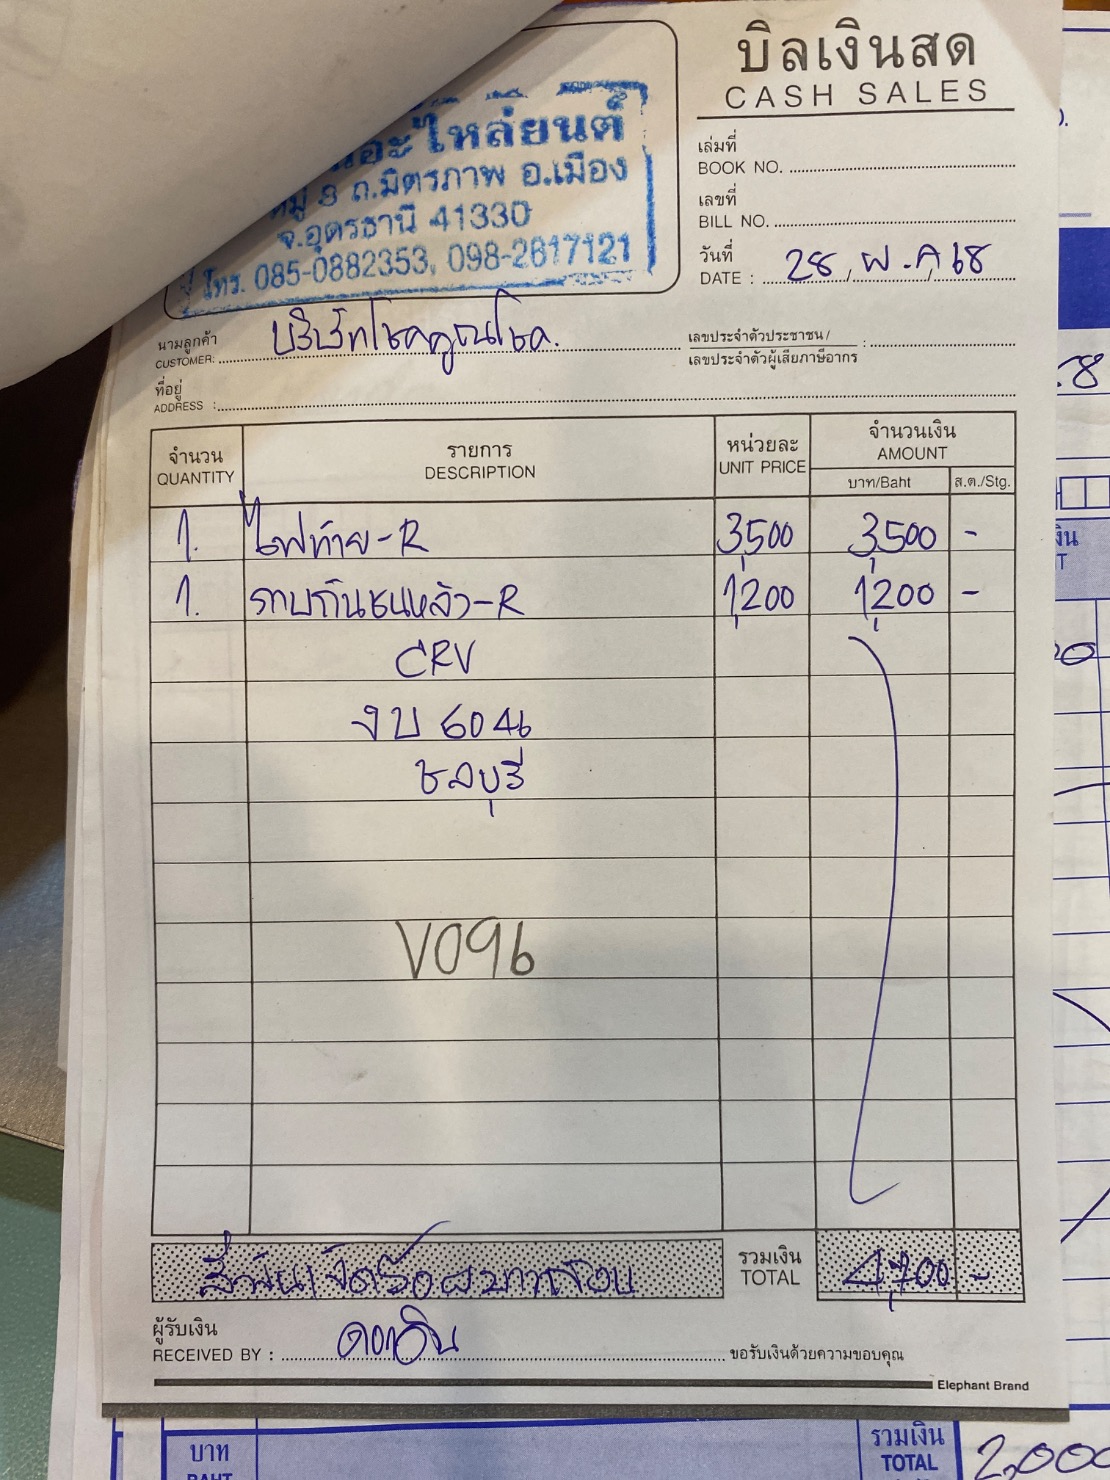 บิลเงินสด
CASH SALES
ไหล่ยนต์
หมู่ 8 ถ.มิตรภาพ อ.เมือง
จ.อุดรธานี 41330
โทร. 085-0882353, 098-2617121
เล่มที่
BOOK NO.
เลขที่
BILL NO.
วันที่
DATE : 28 / พ.ค / 68
นามลูกค้า
CUSTOMER: บริษัทโชคคูณโชค.
เลขประจำตัวประชาชน/
เลขประจำตัวผู้เสียภาษีอากร :
ที่อยู่
ADDRESS :
จำนวน รายการ หน่วยละ จำนวนเงิน
QUANTITY DESCRIPTION UNIT PRICE AMOUNT
บาท/Baht ส.ต./Stg.
1. ไฟท้าย-R 3,500 3,500 -
1. กาบกันชนหลัง-R 1,200 1,200 -
CRV
งบ 6046
ชลบุรี
V096
สี่พันเจ็ดร้อยบาท
รวมเงิน
TOTAL 4,700 -
ผู้รับเงิน
RECEIVED BY :
ขอรับเงินด้วยความขอบคุณ
Elephant Brand
บาท
BAHT
รวมเงิน
TOTAL
2,000